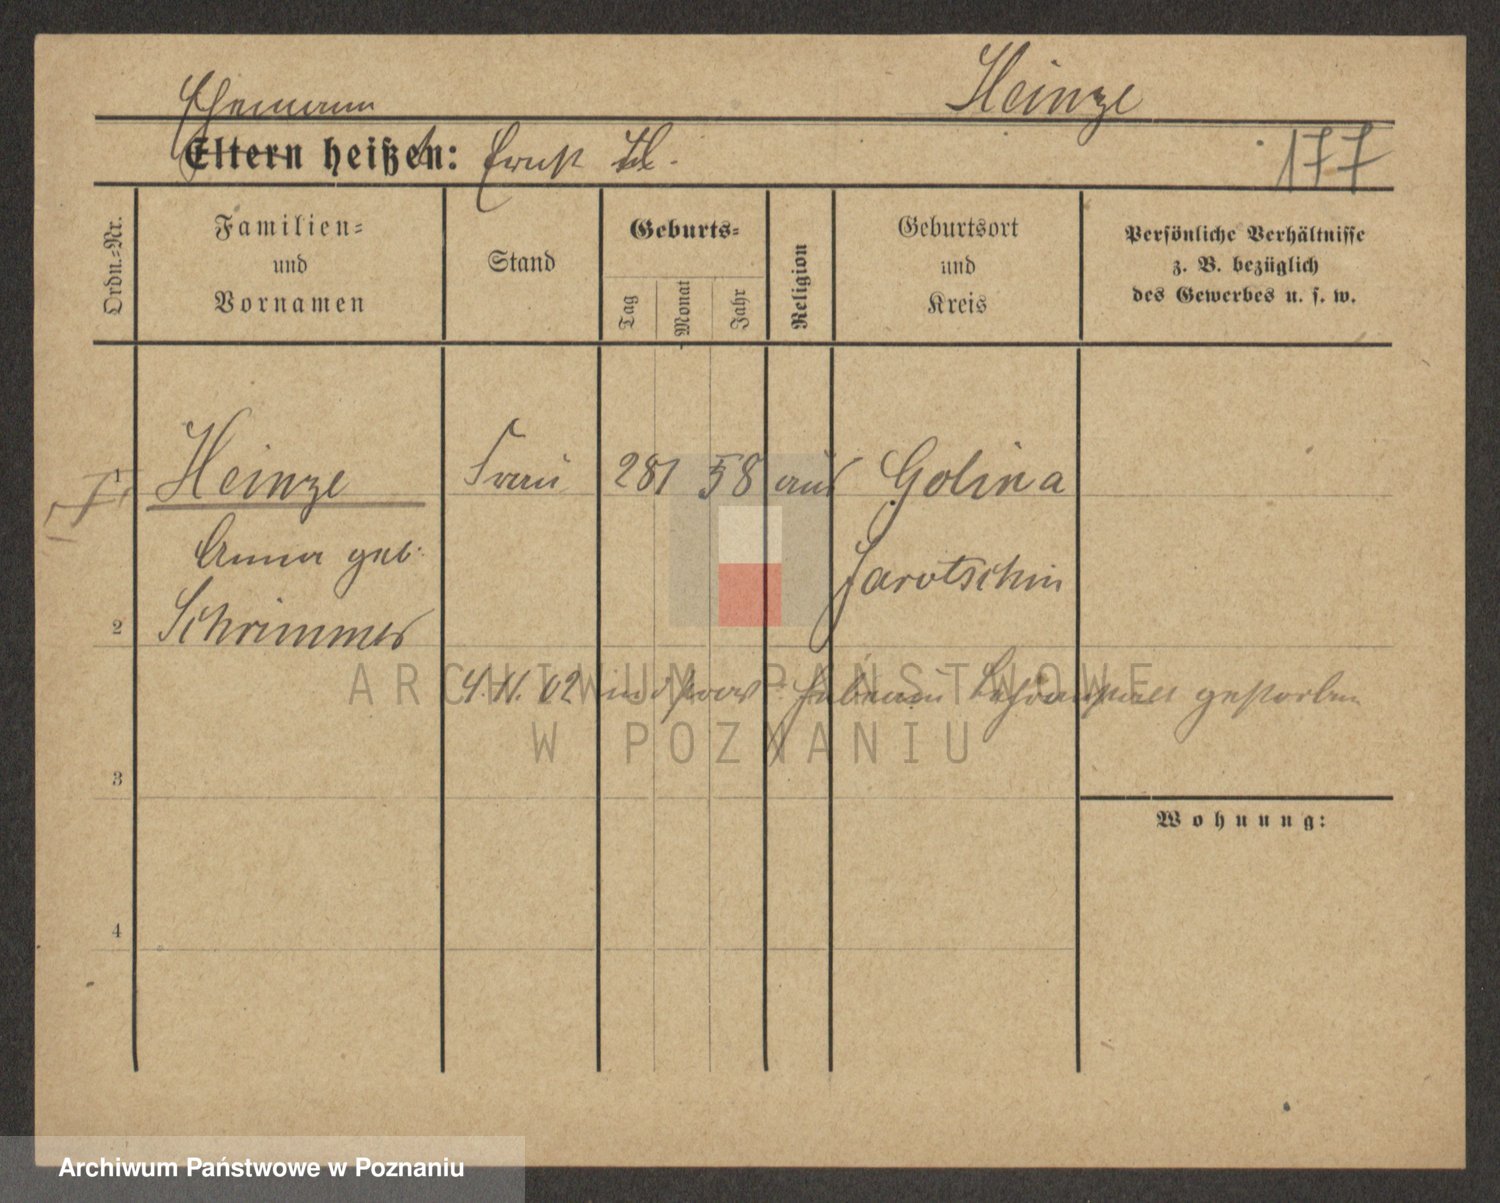 Ehemann Heinze
Eltern heißen: Ernst H. 177
Ordn.-Nr.
Familien-
und
Vornamen
Stand
Geburts-
Tag
Monat
Jahr
Religion
Geburtsort
und
Kreis
Persönliche Verhältnisse
z. B. bezüglich
des Gewerbes u. s. w.
1 Heinze Frau 28 1 58 Golina
Anna geb. Jarotschin
2 Schrimmer
4.11.02 gestorben
3
Wohnung:
4
ARCHIWUM PAŃSTWOWE
W POZNANIU
Archiwum Państwowe w Poznaniu